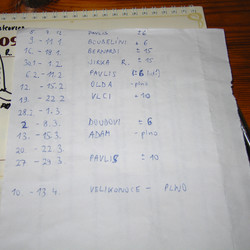 3. - 11.1 DOUDELINI ± 6
12. - 18.1 BERNARDI ± 15
30.1 - 1.2 JIRKA R. ± 15
6.2. - 11.2 PAVLIS
12. - 15.2. OLDA - plno
19. - 22.2 VLCI ± 10
28.2. - 1.3.
2 - 8.3. DOUDOVI ± 6
13. - 15.3. ADAM - plno
20 - 22.3
27 - 29.3 PAVLIS ± 10
10. - 13.4. VELIKONOCE - PLNO